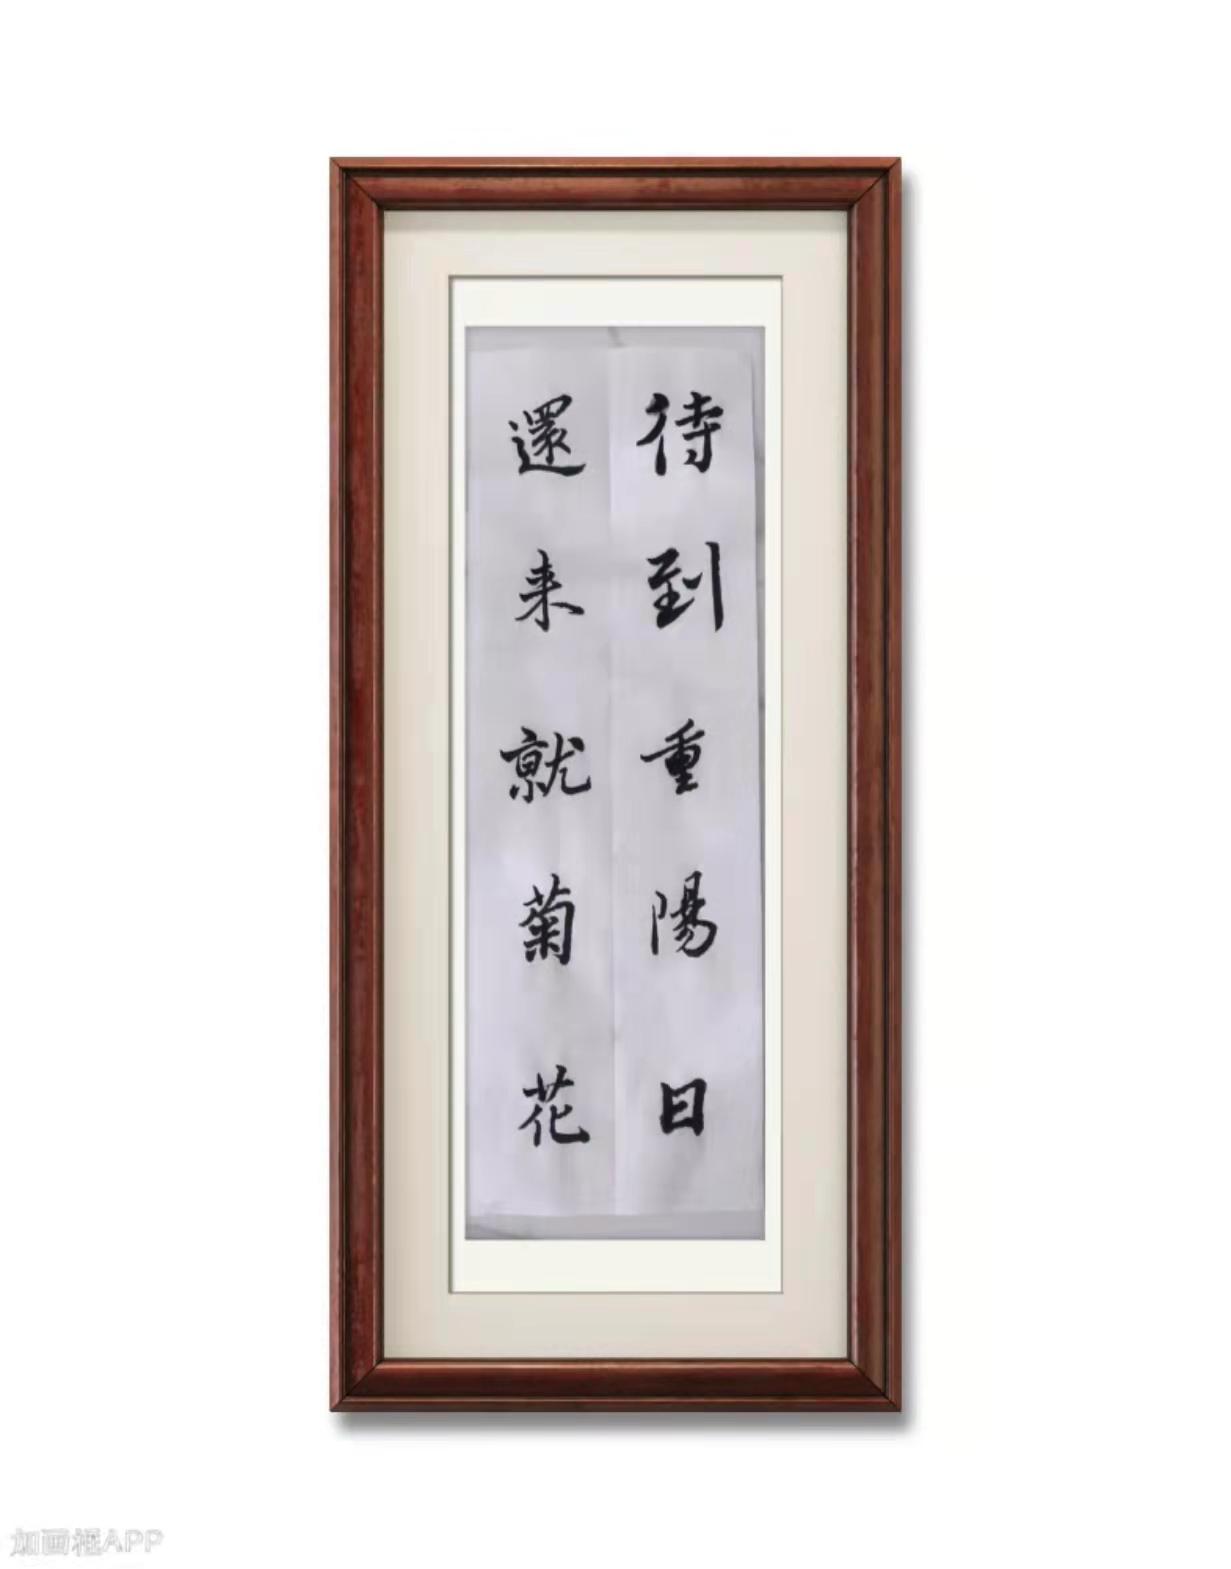 待到重陽日
還来就菊花
加画框APP